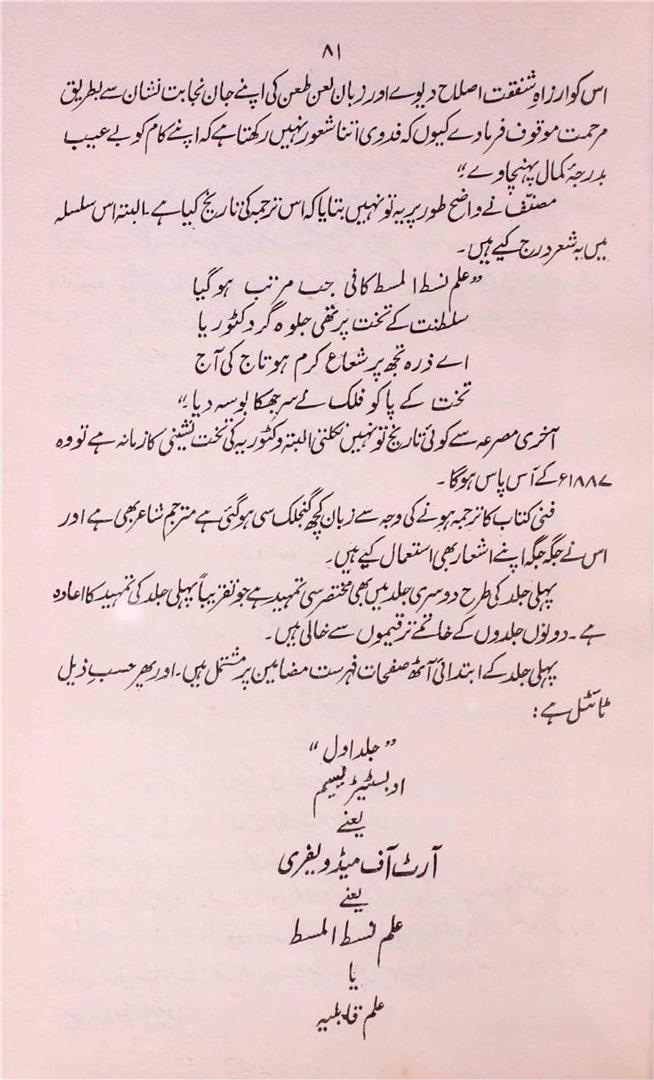 ۸۱
اس کو ازراہِ شفقت اصلاح دیوے اور زبان لعن طعن کی اپنے جان نجابت نشان سے بطریق
مرحمت موقوف فرمادے کیوں کہ فدوی اتنا شعور نہیں رکھتا ہے کہ اپنے کام کو بے عیب
بدرجۂ کمال پہنچاوے۔"
مصنّف نے واضح طور پر یہ تو نہیں بتایا کہ اس ترجمہ کی تاریخ کیا ہے۔ البتہ اس سلسلہ
میں یہ شعر درج کیے ہیں۔
"علم نسط المسط کافی جب مرتب ہو گیا
سلطنت کے تخت پر تھی جلوہ گر وکٹوریا
اے ذرہ تجھ پر شعاع کرم ہو تاج کی آج
تخت کے پا کو فلک نے سر جھکا بوسہ دیا۔"
آخری مصرعہ سے کوئی تاریخ تو نہیں نکلتی البتہ وکٹوریہ کی تخت نشینی کا زمانہ ہے تو وہ
۱۸۸۷ء کے آس پاس ہوگا۔
فنی کتاب کا ترجمہ ہونے کی وجہ سے زبان کچھ گنجلک سی ہوگئی ہے مترجم شاعر بھی ہے اور
اس نے جگہ جگہ اپنے اشعار بھی استعمال کیے ہیں۔
پہلی جلد کی طرح دوسری جلد میں بھی مختصر سی تمہید ہے جو تقریباً پہلی جلد کی تمہید کا اعادہ
ہے۔ دونوں جلدوں کے خاتمے ترقیموں سے خالی ہیں۔
پہلی جلد کے ابتدائی آٹھ صفحات فہرست مضامین پر مشتمل ہیں۔ اور پھر حسب ذیل
ٹائٹل ہے:
"جلد اول"
اوبسٹیٹریسیم
یعنے
آرٹ آف میڈویفری
یعنے
علم نسط المسط
یا
علم قابلیہ